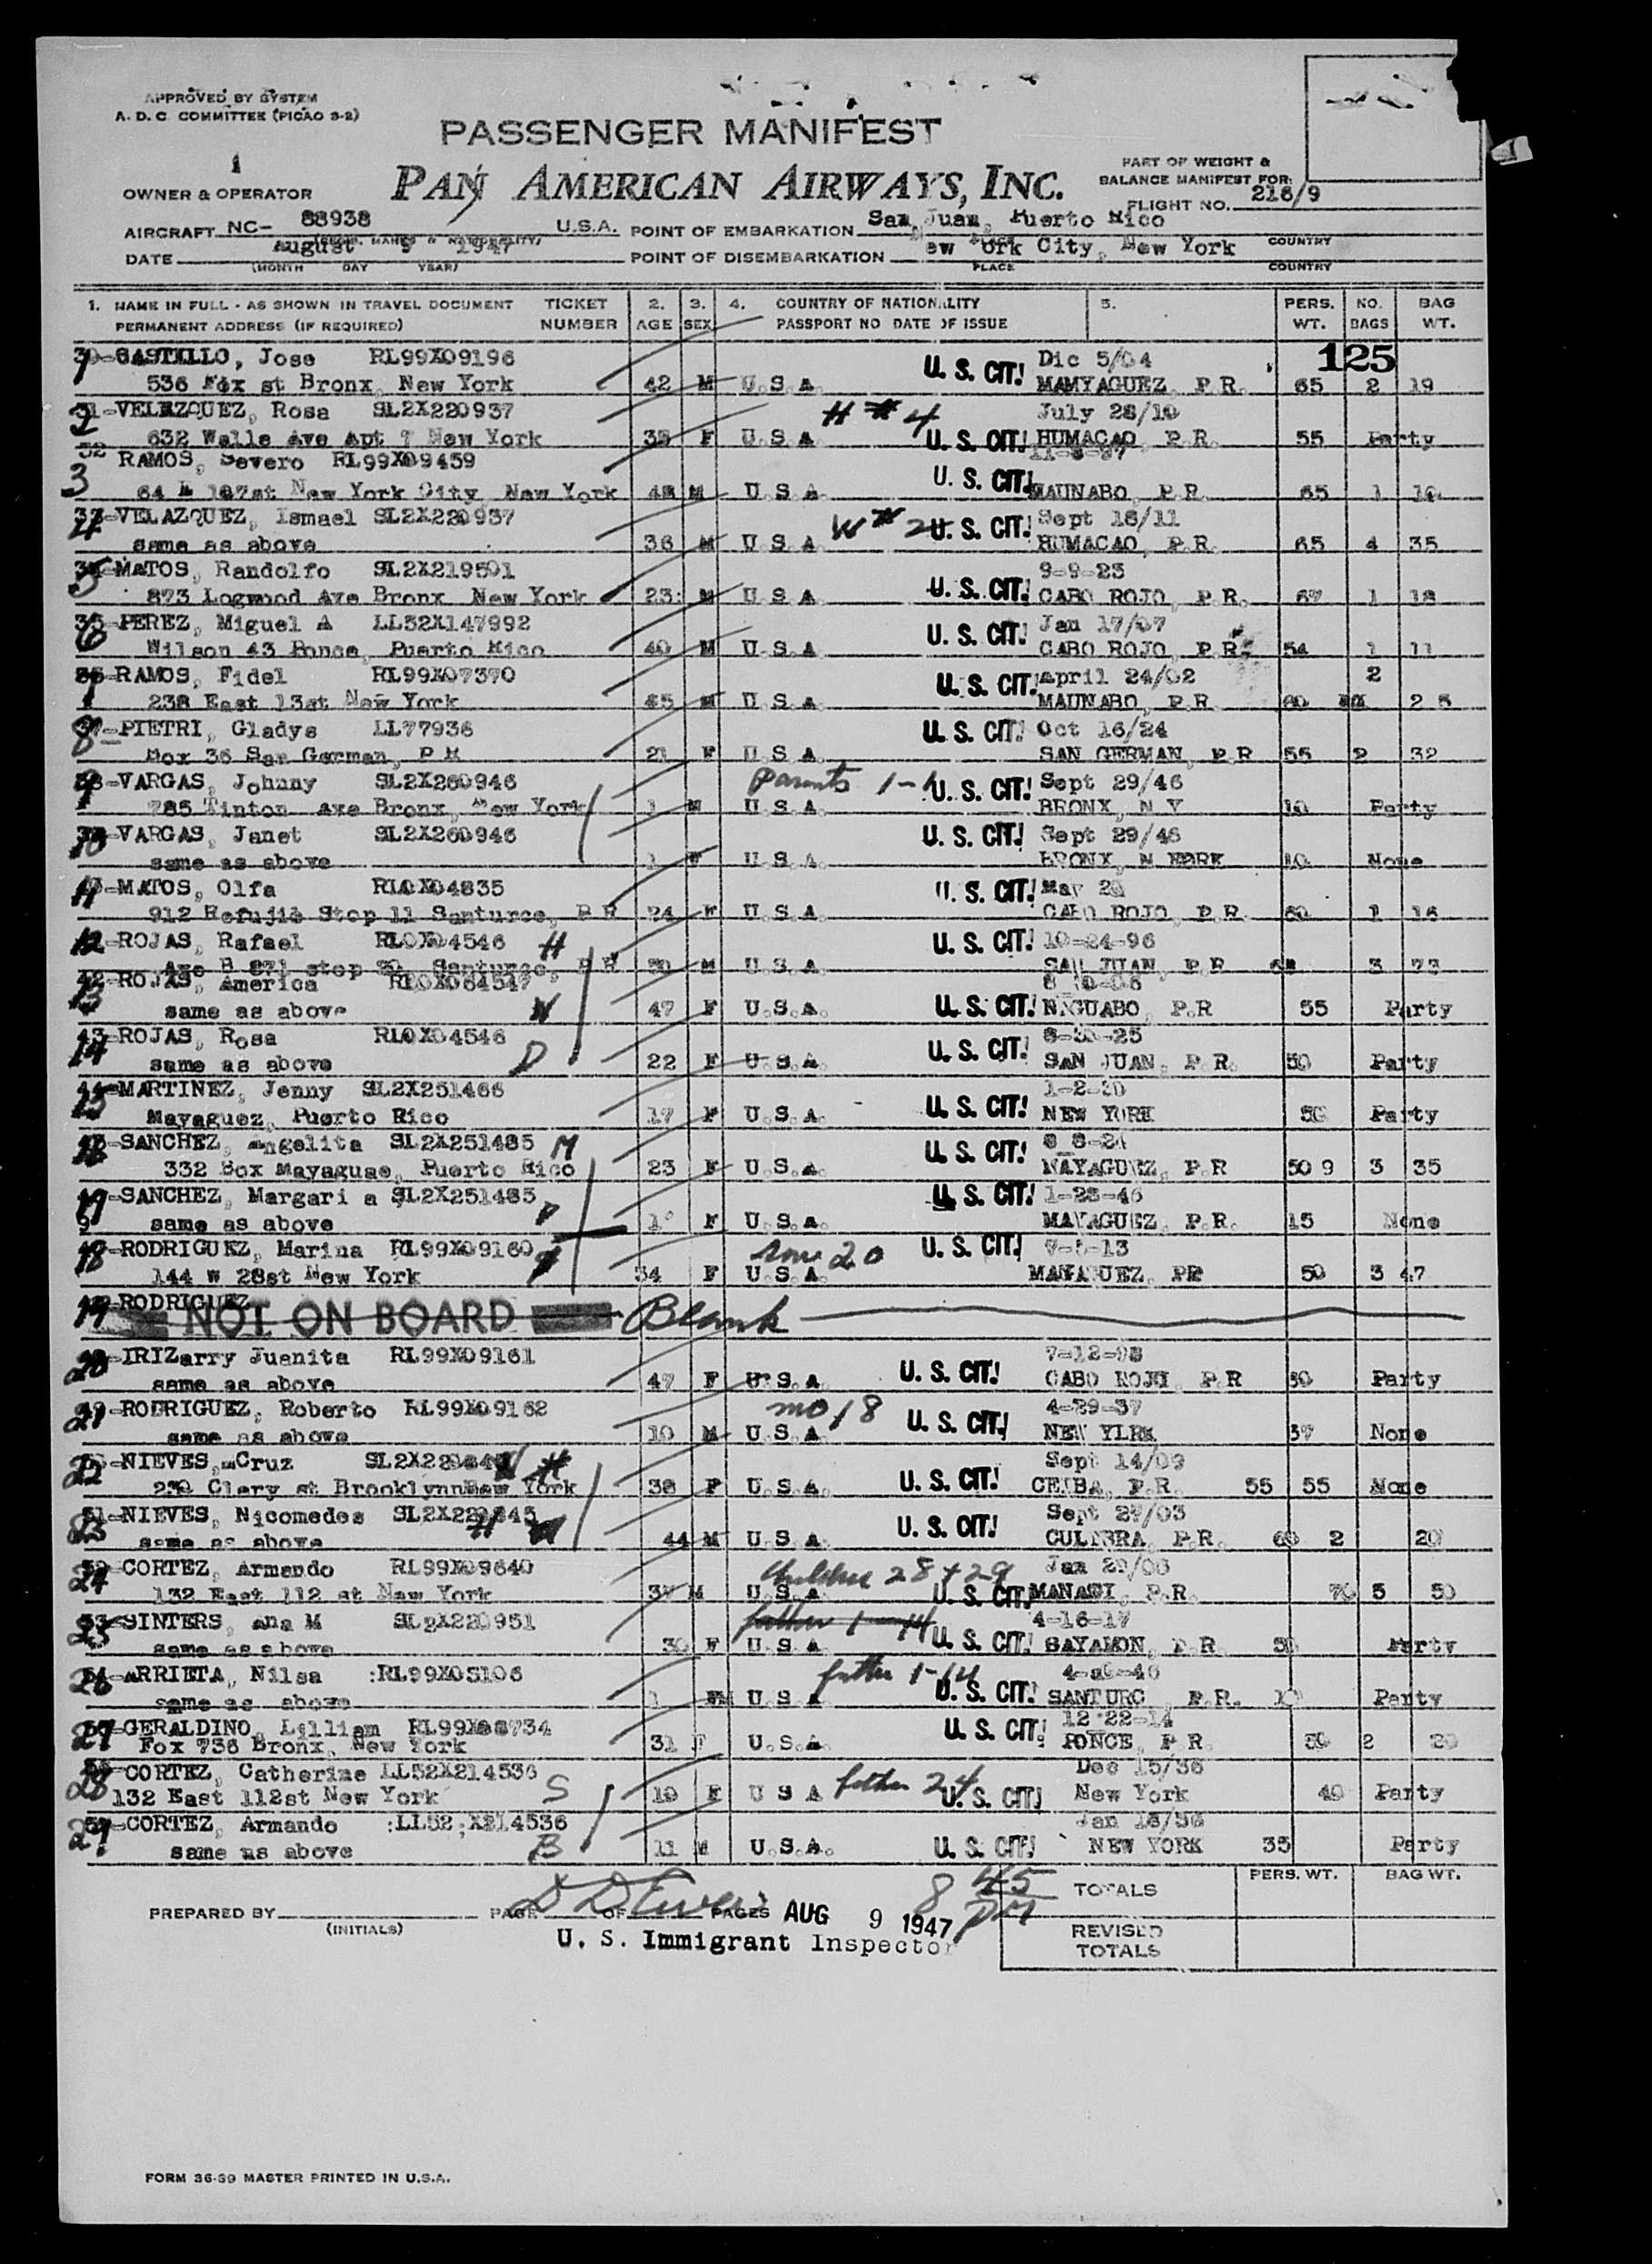 APPROVED BY SYSTEM
A. D. C. COMMITTEE (PICAO 3-2)
PASSENGER MANIFEST
1
PAN AMERICAN AIRWAYS, INC.
PART OF WEIGHT &
BALANCE MANIFEST FOR:
OWNER & OPERATOR
FLIGHT NO. 218/9
AIRCRAFT NC- 88938 U.S.A. POINT OF EMBARKATION San Juan, Puerto Rico
DATE August 9 1947 POINT OF DISEMBARKATION ew York City, New York
(MONTH DAY YEAR) PLACE COUNTRY
1. NAME IN FULL - AS SHOWN IN TRAVEL DOCUMENT TICKET 2. 3. 4. COUNTRY OF NATIONALITY 5. PERS. NO. BAG
PERMANENT ADDRESS (IF REQUIRED) NUMBER AGE SEX PASSPORT NO DATE OF ISSUE WT. BAGS WT.
125
1 CASTILLO, Jose RL99X09196 U. S. CIT! Dic 5/04
536 Fox st Bronx, New York 42 M U.S.A. MAMYAGUEZ, P.R. 65 2 19
2 VELAZQUEZ, Rosa SL2X220937 H # 4 July 28/10
632 Wells Ave Apt 7 New York F U.S.A. U. S. CIT! HUMACAO, P.R. 55 Party
3 RAMOS, Severo RL99X09459 U. S. CIT!
64 New York City New York M U.S.A. MAUNABO, P.R. 65 1
4 VELAZQUEZ, Ismael SL2X220937 W # 2 U. S. CIT! Sept 16/11
same as above 36 M U.S.A. HUMACAO, P.R. 65 4 35
5 MATOS, Randolfo SL2X219501 U. S. CIT! 9-9-23
873 Logwood Ave Bronx New York 23 M U.S.A. CABO ROJO, P.R. 67 1 18
6 PEREZ, Miguel A LL52X147992 U. S. CIT! Jan 17/07
Wilson 43 Ponce, Puerto Rico 40 M U.S.A. CABO ROJO, P.R. 54 1 11
7 RAMOS, Fidel RL99X07370 U. S. CIT! April 24/02 2
238 East 13st New York 45 M U.S.A. MAUNABO, P.R. 2 5
8 PIETRI, Gladys LL77936 U. S. CIT! Oct 16/24
Box 36 San German, P R 21 F U.S.A. SAN GERMAN, P.R 55 2 32
9 VARGAS, Johnny SL2X260946 parents U. S. CIT! Sept 29/46
785 Tinton Ave Bronx, New York 1 M U.S.A. BRONX, N Y 10 Party
10 VARGAS, Janet SL2X260946 U. S. CIT! Sept 29/46
same as above 1 F U.S.A. BRONX, N 10 None
11 MATOS, Olfa RL0X04835 U. S. CIT! Mar
912 Refujio Stop 11 Santurce, P R 24 F U.S.A. CABO ROJO, P.R. 60 1 16
12 ROJAS, Rafael RL0X04546 H U. S. CIT! 10-24-96
Ave B 871 stop Santurce, P R M U.S.A. SAN JUAN, P R 3 73
13 ROJAS, America W
same as above 47 F U.S.A. U. S. CIT! NAGUABO, P.R 55 Party
14 ROJAS, Rosa RL0X04546 D U. S. CIT!
same as above 22 F U.S.A. SAN JUAN, P.R. 50 Party
15 MARTINEZ, Jenny SL2X251466 U. S. CIT!
Mayaguez, Puerto Rico 17 F U.S.A. NEW YORK Party
16 SANCHEZ, Angelita SL2X251485 M U. S. CIT!
332 Box Mayaguae, Puerto Rico 23 F U.S.A. MAYAGUEZ, P.R 50 9 3 35
17 SANCHEZ, Margari a SL2X251485 U. S. CIT! 1-28-46
same as above 1 F U.S.A. MAYAGUEZ, P.R. 15 None
18 RODRIGUEZ, Marina RL99X09160 son 20 U. S. CIT!
144 W 28st New York 34 F U.S.A. PR 50 3 47
19 RODRIGUEZ
NOT ON BOARD Blank
20 IRIZarry Juanita RL99X09161 U. S. CIT!
same as above 47 F U.S.A. CABO ROJO, P.R 50 Party
21 RODRIGUEZ, Roberto RL99X09162 mo 18 U. S. CIT! 4-29-37
same as above 10 M U.S.A. NEW 37 None
22 NIEVES, Cruz H U. S. CIT! Sept 14/09
Clery st Brooklynn New York 38 F U.S.A. CEIBA, P.R. 55 55 None
23 NIEVES, Nicomedes H U. S. CIT! Sept 27/03
same as above 44 M U.S.A. CULEBRA, P.R. 60 2 20
24 CORTEZ, Armando RL99X09640 children 28 + 29
132 East 112 st New York M U.S.A. U. S. CIT! MANATI, P.R. 70 5 50
25 SINTERS, ana M SL2X220951 father 4-16-17
same as above 30 F U.S.A. U. S. CIT! BAYAMON, P.R. 50 Party
26 ARRIETA, Nilsa :RL99X05106 father 1-14
same as above 1 U.S.A U. S. CIT! SANTURC P.R. Party
27 GERALDINO, Lilliam U. S. CIT! 12-22-14
Fox 736 Bronx, New York 31 F U.S.A. PONCE, P.R. 50 2 20
28 CORTEZ, Catherine LL52X214536 S father 24 Dec 15/36
132 East 112st New York 10 F U S A U. S. CIT! New York 40 Party
29 CORTEZ, Armando :LL52;X214536 B
same as above 11 M U.S.A. U. S. CIT! NEW YORK 35 Party
8 45 PM TOTALS PERS. WT. BAG WT.
PREPARED BY PAGE OF PAGES AUG 9 1947
(INITIALS) REVISED
U. S. Immigrant Inspector TOTALS
FORM 36-39 MASTER PRINTED IN U.S.A.